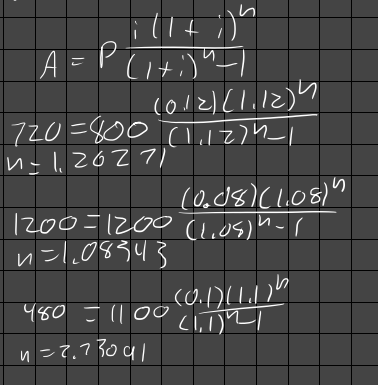 A = P i(1+i)^n / (1+i)^n-1
720 = 800 (0.12)(1.12)^n / (1.12)^n-1
n = 1.26271
1200 = 1200 (0.08)(1.08)^n / (1.08)^n-1
n = 1.08343
480 = 1100 (0.1)(1.1)^n / (1.1)^n-1
n = 2.73091